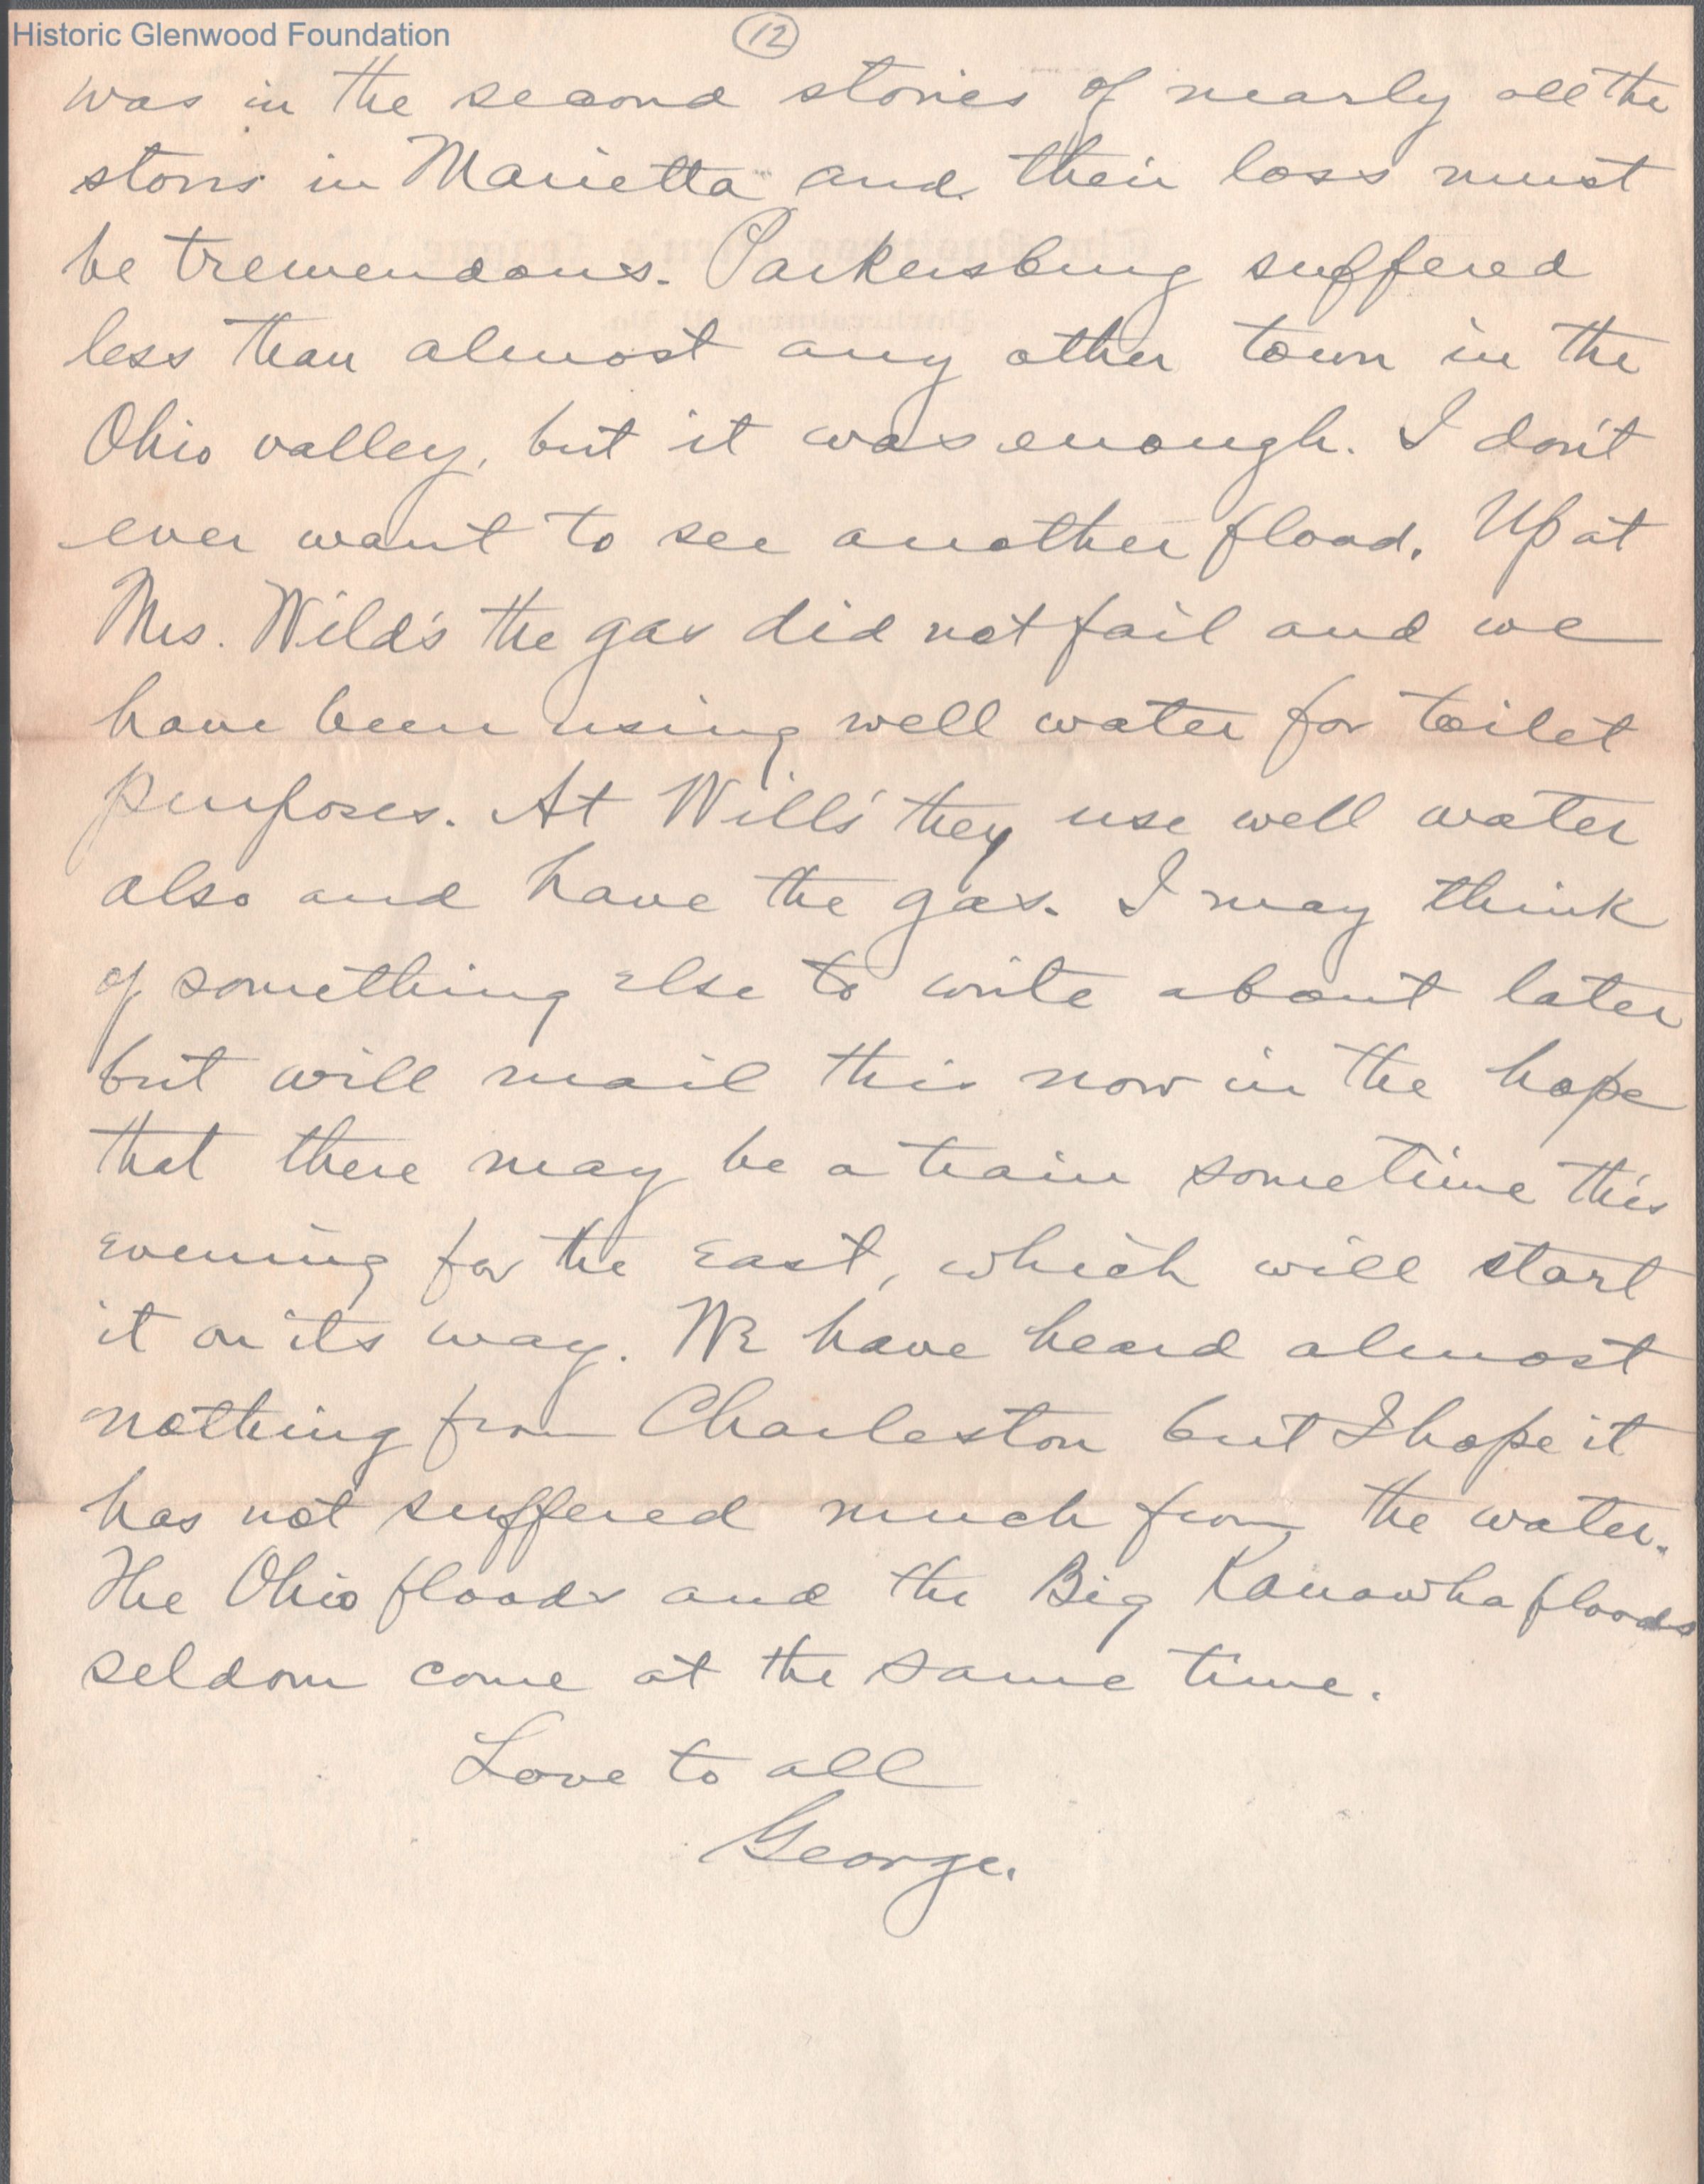 Historic Glenwood Foundation
12
was in the second stories of nearly all the
stores in Marietta and their loss must
be tremendous. Parkersburg suffered
less than almost any other town in the
Ohio valley, but it was enough. I don't
ever want to see another flood. Up at
Mrs. Wild's the gas did not fail and we
have been using well water for toilet
purposes. At Will's they use well water
also and have the gas. I may think
of something else to write about later
but will mail this now in the hope
that there may be a train sometime this
evening for the East, which will start
it on its way. We have heard almost
nothing from Charleston but I hope it
has not suffered much from the water.
The Ohio floods and the Big Kanawha floods
seldom come at the same time.
Love to all
George.